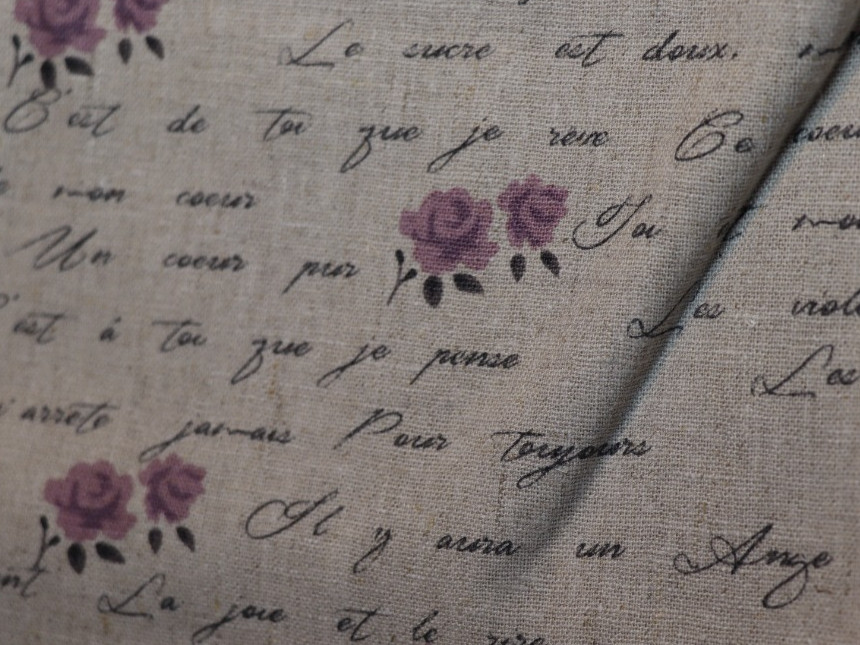 Le sucre est doux.
C'est de toi que je reve Ce
mon coeur
Toi
Un coeur pur
Les
C'est à toi que je pense
Les
arrete jamais Pour toujours
Il y aura un Ange
La joie et le rire